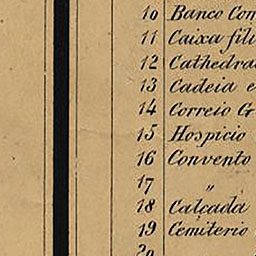 10 Banco Com
11 Caixa fili
12 Cathedral
13 Cadeia e
14 Correio G
15 Hospicio
16 Convento
17 "
18 Calçada
19 Cemiterio
20